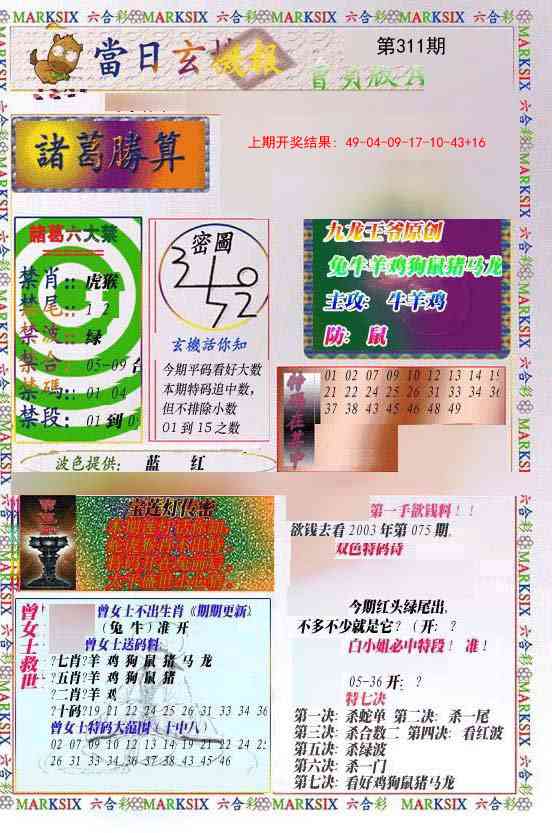 MARKSIX 六合彩 MARKSIX 六合彩 MARKSIX 六合彩 MARKSIX 六合彩
當日玄機報
第311期
上期开奖结果: 49-04-09-17-10-43+16
諸葛勝算
諸葛六大禁
禁肖:: 虎猴
禁尾:: 1 2
禁波:: 绿
禁合:: 05-09 合
禁碼:: 01 04
禁段:: 01 到 0
密圖
玄機話你知
今期平码看好大数
本期特码追中数,
但不排除小数
01 到 15 之数
九龙王爷原创
兔牛羊鸡狗鼠猪马龙
主攻: 牛羊鸡
防: 鼠
特碼在其中
01 02 07 09 10 12 13 14 19
21 22 24 25 26 31 33 34 36
37 38 43 45 46 48 49
波色提供: 蓝 红
宝莲灯传密
第一手欲钱料!!
欲钱去看 2003 年第 075 期,
双色特码诗
今期红头绿尾出,
不多不少就是它? (开: ?
白小姐必中特段! 准!
05-36 开: ?
特七决
第一决: 杀蛇单 第二决: 杀一尾
第三决: 杀合数二 第四决: 看红波
第五决: 杀绿波
第六决: 杀一门
第七决: 看好鸡狗鼠猪马龙
曾女士救世
曾女士不出生肖《期期更新》
(兔 牛) 准 开
曾女士送码料:
?七肖?羊 鸡 狗 鼠 猪 马 龙
?五肖?羊 鸡 狗 鼠 猪
?二肖?羊 鸡
?十码?19 21 22 24 25 26 31 33 34 36
曾女士特码大范围〔十中八〕
02 07 09 10 12 13 14 19 21 22 24 25
26 31 33 34 36 37 38 43 45 46
MARKSIX 六合彩 MARKSIX 六合彩 MARKSIX 六合彩 MARKSIX 六合彩